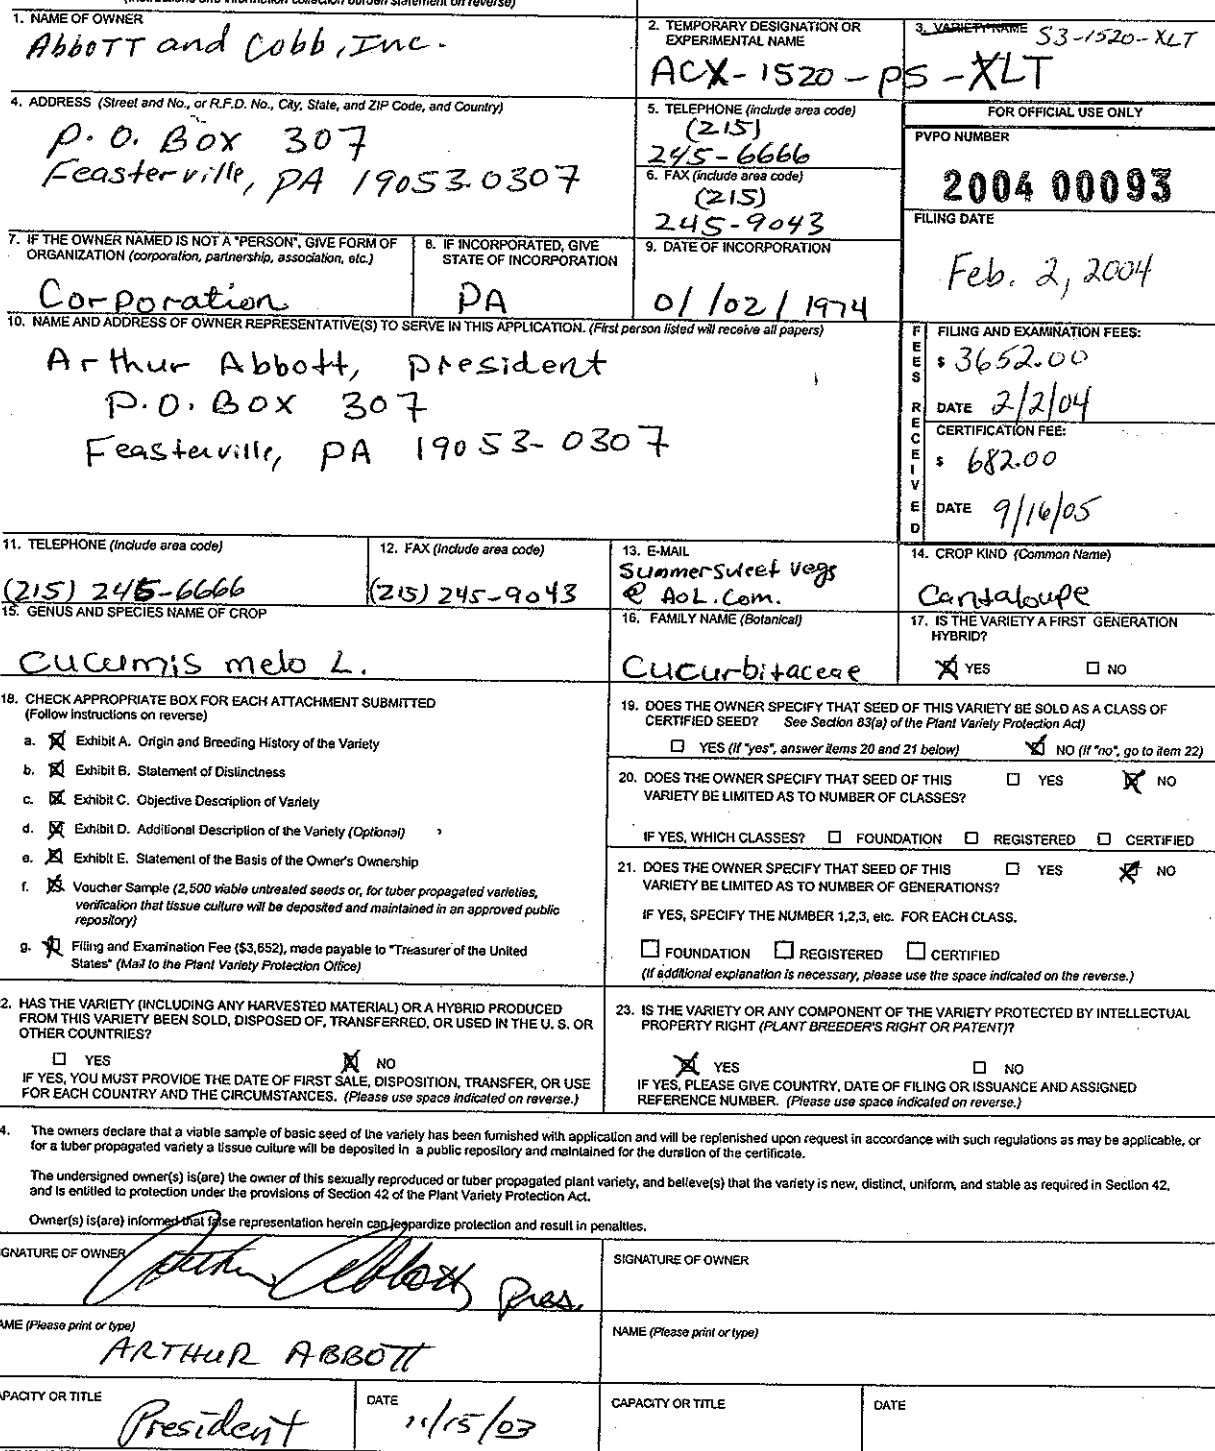 (Instructions and information collection burden statement on reverse)
1. NAME OF OWNER
Abbott and Cobb, Inc.
2. TEMPORARY DESIGNATION OR
EXPERIMENTAL NAME
ACX-1520-PS-XLT
3. VARIETY NAME S3-1520-XLT
4. ADDRESS (Street and No., or R.F.D. No., City, State, and ZIP Code, and Country)
P.O. Box 307
Feasterville, PA 19053-0307
5. TELEPHONE (include area code)
(215)
245-6666
6. FAX (include area code)
(215)
245-9043
FOR OFFICIAL USE ONLY
PVPO NUMBER
2004 00093
FILING DATE
Feb. 2, 2004
7. IF THE OWNER NAMED IS NOT A "PERSON", GIVE FORM OF
ORGANIZATION (corporation, partnership, association, etc.)
Corporation
8. IF INCORPORATED, GIVE
STATE OF INCORPORATION
PA
9. DATE OF INCORPORATION
01/02/1974
10. NAME AND ADDRESS OF OWNER REPRESENTATIVE(S) TO SERVE IN THIS APPLICATION. (First person listed will receive all papers)
Arthur Abbott, president
P.O. Box 307
Feasterville, PA 19053-0307
FEES RECEIVED
FILING AND EXAMINATION FEES:
$ 3652.00
DATE 2/2/04
CERTIFICATION FEE:
$ 682.00
DATE 9/16/05
11. TELEPHONE (Include area code)
(215) 245-6666
12. FAX (Include area code)
(215) 245-9043
13. E-MAIL
Summersweet Vegs
@ AOL.Com.
14. CROP KIND (Common Name)
Cantaloupe
15. GENUS AND SPECIES NAME OF CROP
Cucumis melo L.
16. FAMILY NAME (Botanical)
Cucurbitaceae
17. IS THE VARIETY A FIRST GENERATION
HYBRID?
☒ YES ☐ NO
18. CHECK APPROPRIATE BOX FOR EACH ATTACHMENT SUBMITTED
(Follow instructions on reverse)
a. ☒ Exhibit A. Origin and Breeding History of the Variety
b. ☒ Exhibit B. Statement of Distinctness
c. ☒ Exhibit C. Objective Description of Variety
d. ☒ Exhibit D. Additional Description of the Variety (Optional)
e. ☒ Exhibit E. Statement of the Basis of the Owner's Ownership
f. ☒ Voucher Sample (2,500 viable untreated seeds or, for tuber propagated varieties,
verification that tissue culture will be deposited and maintained in an approved public
repository)
g. ☒ Filing and Examination Fee ($3,652), made payable to "Treasurer of the United
States" (Mail to the Plant Variety Protection Office)
19. DOES THE OWNER SPECIFY THAT SEED OF THIS VARIETY BE SOLD AS A CLASS OF
CERTIFIED SEED? See Section 83(a) of the Plant Variety Protection Act)
☐ YES (If "yes", answer items 20 and 21 below) ☒ NO (If "no", go to item 22)
20. DOES THE OWNER SPECIFY THAT SEED OF THIS ☐ YES ☒ NO
VARIETY BE LIMITED AS TO NUMBER OF CLASSES?
IF YES, WHICH CLASSES? ☐ FOUNDATION ☐ REGISTERED ☐ CERTIFIED
21. DOES THE OWNER SPECIFY THAT SEED OF THIS ☐ YES ☒ NO
VARIETY BE LIMITED AS TO NUMBER OF GENERATIONS?
IF YES, SPECIFY THE NUMBER 1,2,3, etc. FOR EACH CLASS.
☐ FOUNDATION ☐ REGISTERED ☐ CERTIFIED
(If additional explanation is necessary, please use the space indicated on the reverse.)
2. HAS THE VARIETY (INCLUDING ANY HARVESTED MATERIAL) OR A HYBRID PRODUCED
FROM THIS VARIETY BEEN SOLD, DISPOSED OF, TRANSFERRED, OR USED IN THE U. S. OR
OTHER COUNTRIES?
☐ YES ☒ NO
IF YES, YOU MUST PROVIDE THE DATE OF FIRST SALE, DISPOSITION, TRANSFER, OR USE
FOR EACH COUNTRY AND THE CIRCUMSTANCES. (Please use space indicated on reverse.)
23. IS THE VARIETY OR ANY COMPONENT OF THE VARIETY PROTECTED BY INTELLECTUAL
PROPERTY RIGHT (PLANT BREEDER'S RIGHT OR PATENT)?
☒ YES ☐ NO
IF YES, PLEASE GIVE COUNTRY, DATE OF FILING OR ISSUANCE AND ASSIGNED
REFERENCE NUMBER. (Please use space indicated on reverse.)
4. The owners declare that a viable sample of basic seed of the variety has been furnished with application and will be replenished upon request in accordance with such regulations as may be applicable, or
for a tuber propagated variety a tissue culture will be deposited in a public repository and maintained for the duration of the certificate.
The undersigned owner(s) is(are) the owner of this sexually reproduced or tuber propagated plant variety, and believe(s) that the variety is new, distinct, uniform, and stable as required in Section 42,
and is entitled to protection under the provisions of Section 42 of the Plant Variety Protection Act.
Owner(s) is(are) informed that false representation herein can jeopardize protection and result in penalties.
IGNATURE OF OWNER
Arthur Abbott Pres.
SIGNATURE OF OWNER
AME (Please print or type)
ARTHUR ABBOTT
NAME (Please print or type)
APACITY OR TITLE
President
DATE
11/15/03
CAPACITY OR TITLE
DATE